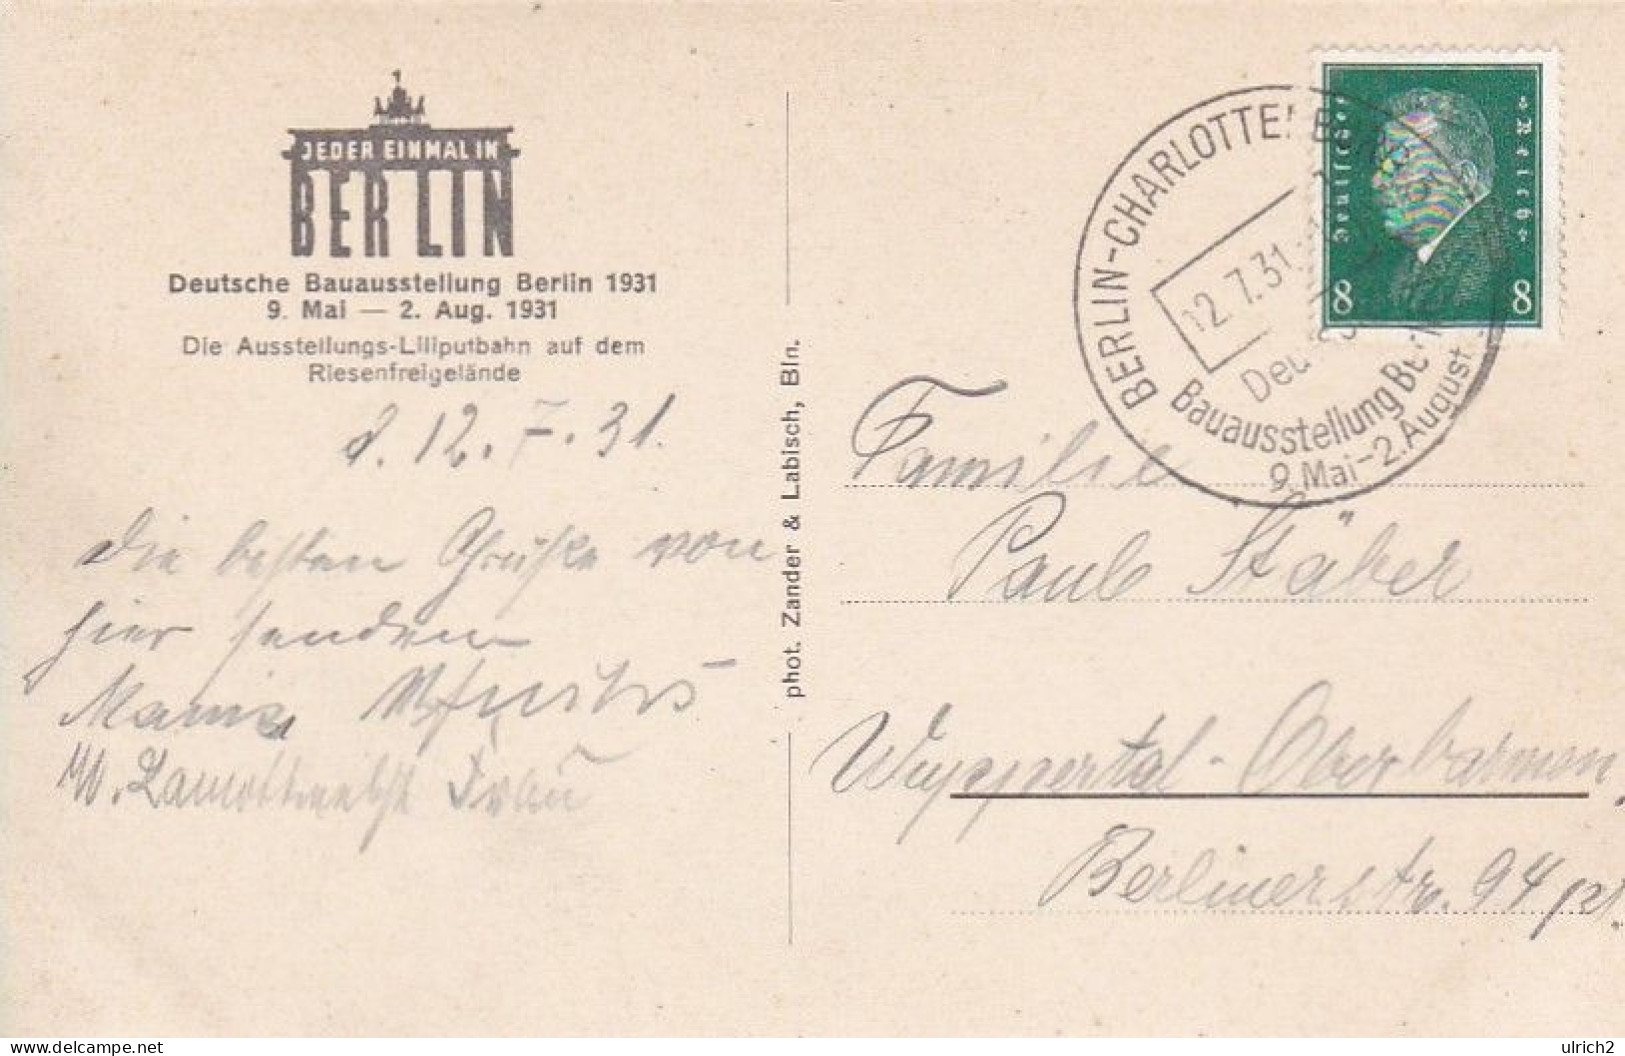 JEDER EINMAL IN
BERLIN
Deutsche Bauausstellung Berlin 1931
9. Mai — 2. Aug. 1931
Die Ausstellungs-Liliputbahn auf dem
Riesenfreigelände
d. 12. 7. 31.
Die besten Grüße von
hier senden
W. Frau
phot. Zander & Labisch, Bln.
Deutsches Reich
8 8
BERLIN-CHARLOTTENB
12.7.31
Bauausstellung Berlin
9. Mai-2. August
Familie
Paul Stäber
Wuppertal-Oberbarmen
Berlinerstr. 94
ansichtskarten-center.de
ulrich2